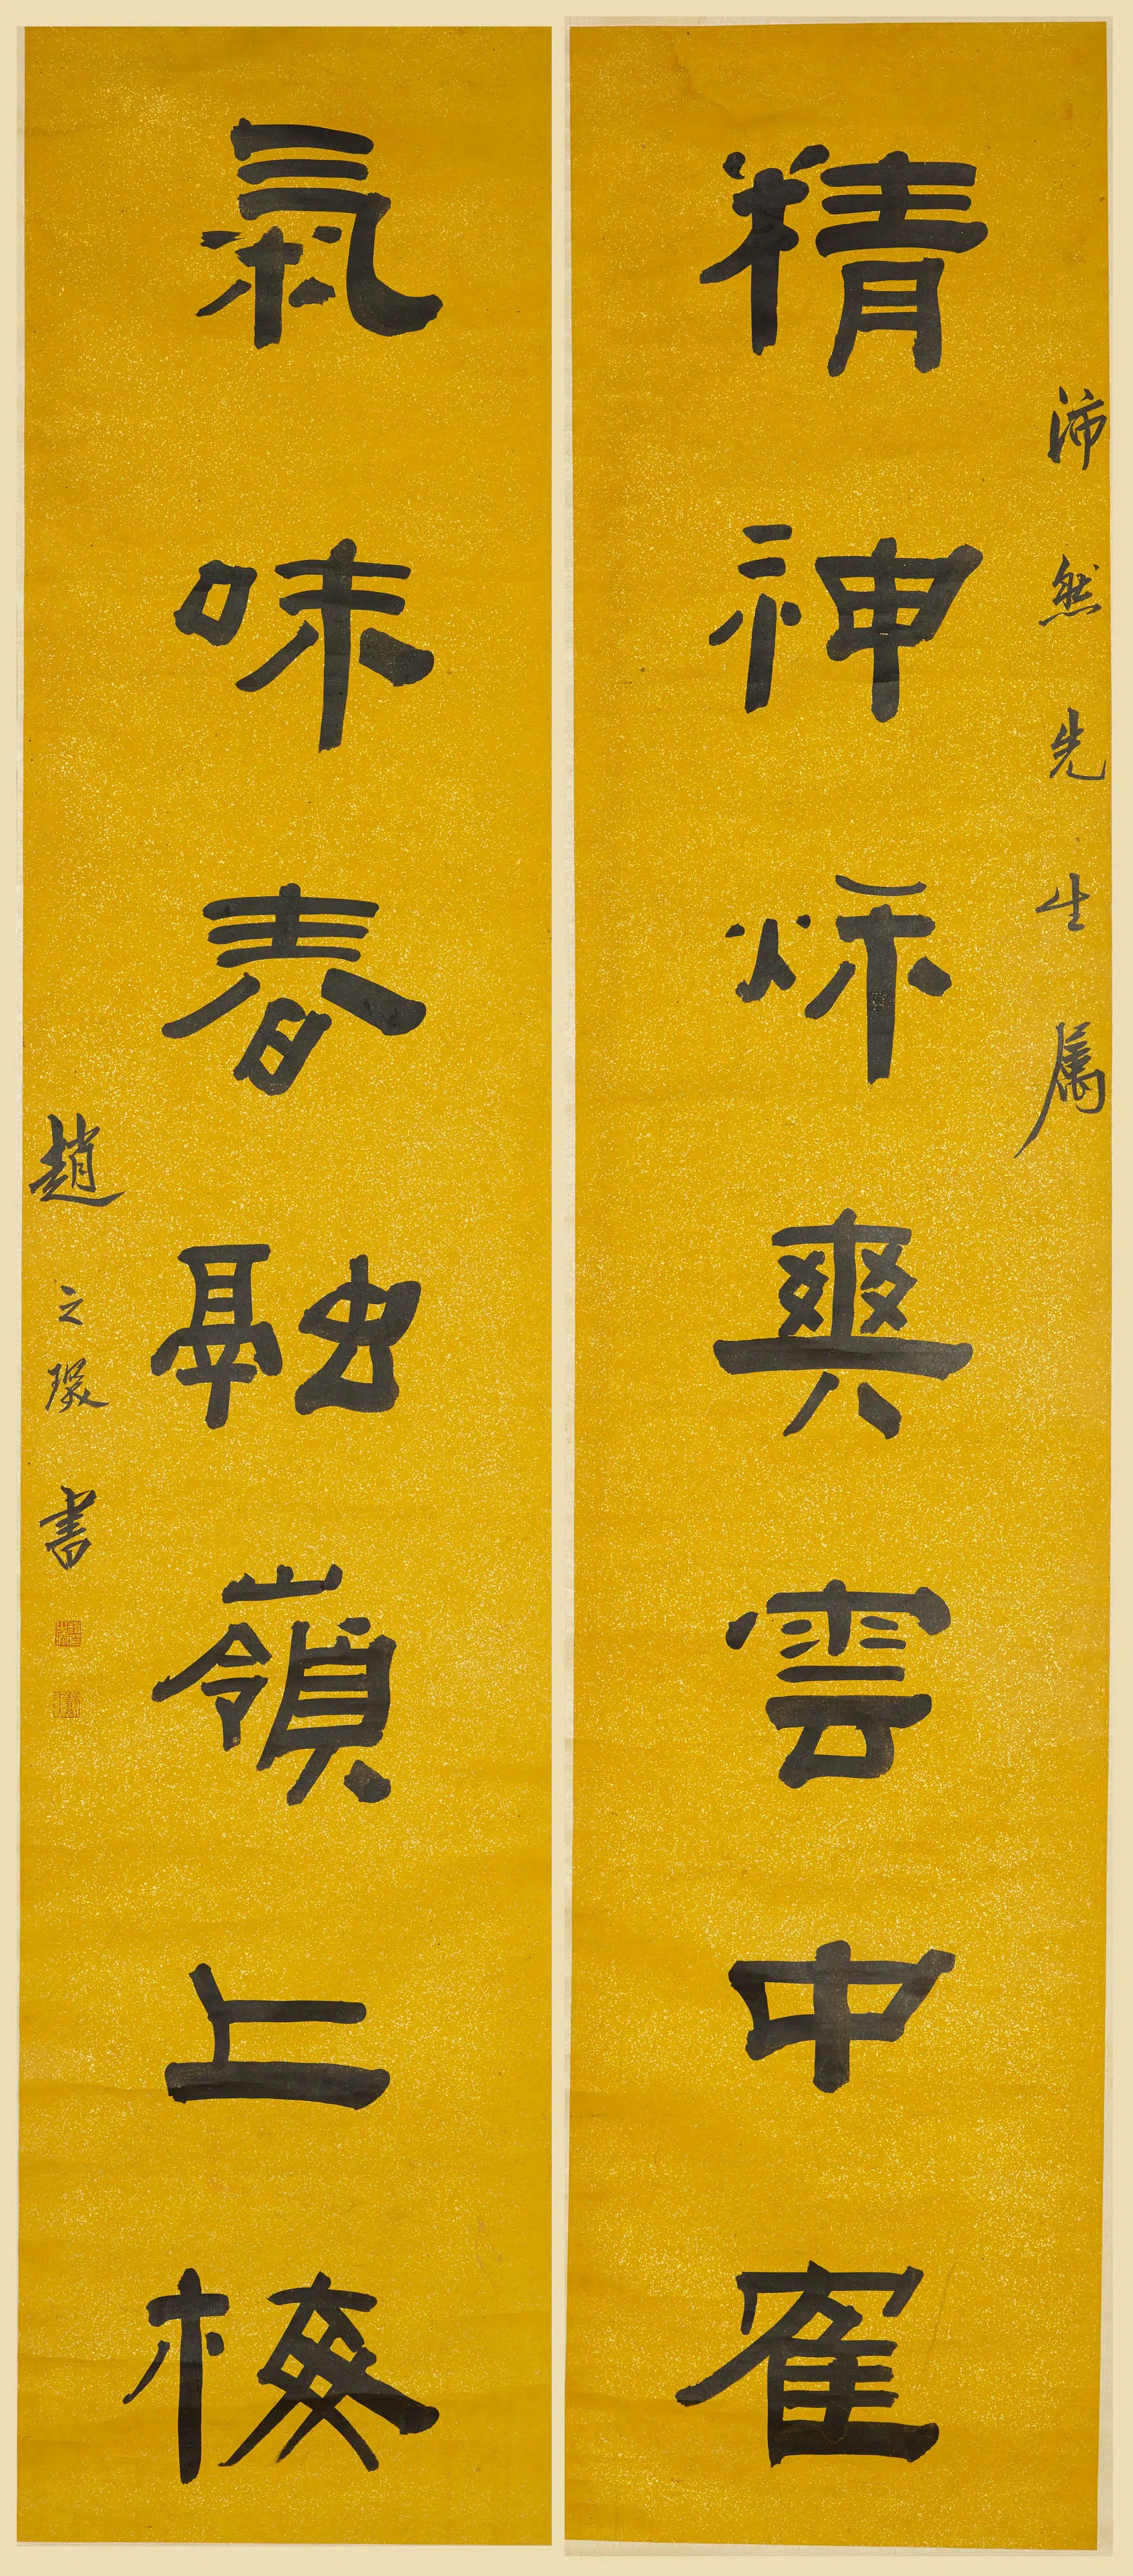 沛然先生属
精神秌爽雲中隺
氣味春融嶺上梅
趙之琛書